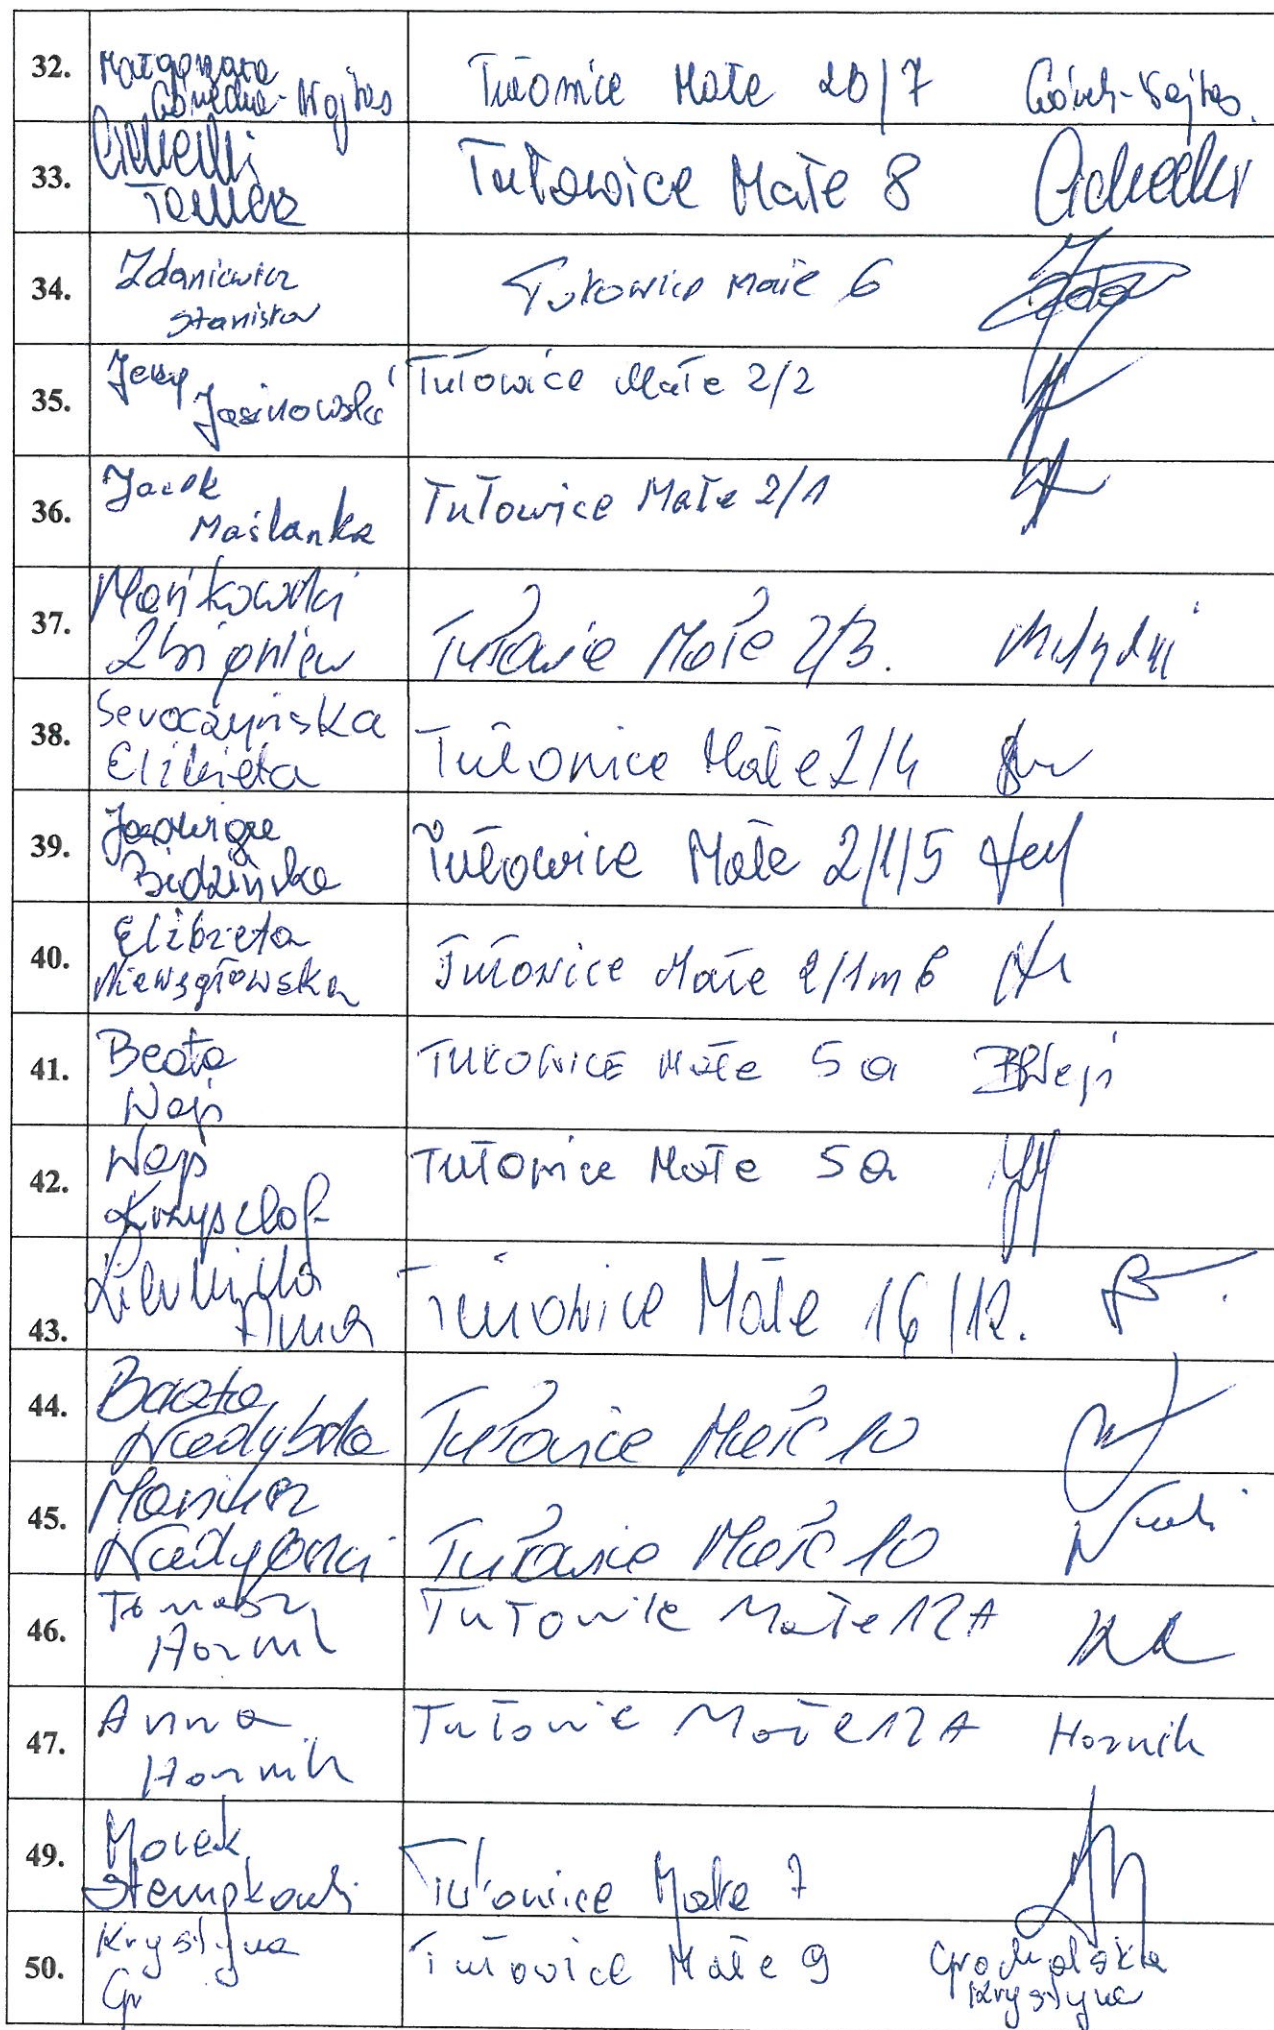 32. Małgorzata
Górecka-Wojtas Tułowice Małe 20/7 Górec-Wojtas.
33. Cichecki
Tomek Tułowice Małe 8 Cichecki
34. Zdaniewicz
Stanisław Tułowice Małe 6
35. Jerzy
Jasinowski Tułowice Małe 2/2
36. Jacek
Maślanka Tułowice Małe 2/1
37. Mańkowski
Zbigniew Tułowice Małe 2/3.
38. Elżbieta Tułowice Małe 2/4
39. Jadwiga
Bidzińska Tułowice Małe 2/1/5
40. Elżbieta
Niewęgłowska Tułowice Małe 2/1 m 6
41. Beata
Wejs TUŁOWICE Małe 5a
42. Krzysztof Tułowice Małe 5a
43. Anna Tułowice Małe 16/12.
44. Beata
Nadybska Tułowice Małe 10
45. Nadybski Tułowice Małe 10
46. Tomasz
Hornik Tułowice Małe 12A
47. Anna
Hornik Tułowice Małe 12A Hornik
49. Marek
Stempkowski Tułowice Małe 7
50. Krystyna
Gr Tułowice Małe 9 Grochalska
Krystyna